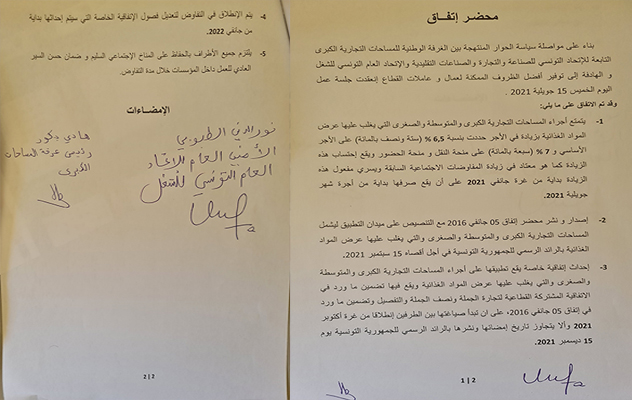 محضر إتفـــاق
بناء على مواصلة سياسة الحوار المنتهجة بين الغرفة الوطنية للمساحات التجارية الكبرى
التابعة للإتحاد التونسي للصناعة والتجارة والصناعات التقليدية والإتحاد العام التونسي للشغل
و الهادفة إلى توفير أفضل الظروف الممكنة لعمال و عاملات القطاع إنعقدت جلسة عمل
اليوم الخميس 15 جويلية 2021 .
وقد تم الاتفاق على ما يلي:
1- يتمتع أجراء المساحات التجارية الكبرى والمتوسطة والصغرى التي يغلب عليها عرض
المواد الغذائية بزيادة في الأجر حددت بنسبة 6,5 % (ستة ونصف بالمائة) على الأجر
الأساسي و 7 % (سبعة بالمائة) على منحة النقل و منحة الحضور ويقع إحتساب هذه
الزيادة كما هو معتاد في زيادة المفاوضات الاجتماعية السابقة ويسري مفعول هذه
الزيادة من غرة جانفي 2021 على أن يقع صرفها بداية من أجرة شهر
جويلية 2021.
2- إصدار و نشر محضر إتفاق 05 جانفي 2016 مع التنصيص على ميدان التطبيق ليشمل
المساحات التجارية الكبرى والمتوسطة والصغرى والتي يغلب عليها عرض المواد
الغذائية بالرائد الرسمي للجمهورية التونسية في أجل أقصاه 15 سبتمبر 2021.
3- إحداث إتفاقية خاصة يقع تطبيقها على أجراء المساحات التجارية الكبرى والمتوسطة
والصغرى والتي يغلب عليها عرض المواد الغذائية ويقع فيها تضمين ما ورد في
الاتفاقية المشتركة القطاعية لتجارة الجملة ونصف الجملة والتفصيل وتضمين ما ورد
في إتفاق 05 جانفي 2016، على ان تبدأ صياغتها بين الطرفين إنطلاقا من غرة أكتوبر
2021 وألا يتجاوز تاريخ إمضائها ونشرها بالرائد الرسمي للجمهورية التونسية يوم
15 ديسمبر 2021.
1 | 2
4- يتم الإنطلاق في التفاوض لتعديل فصول الإتفاقية الخاصة التي سيتم إحداثها بداية
من جانفي 2022.
5- يلتزم جميع الأطراف بالحفاظ على المناخ الإجتماعي السليم و ضمان حسن السير
العادي للعمل داخل المؤسسات خلال مدة التفاوض.
الإمضاءات
نور الدين الطبوبي
الأمين العام للإتحاد
العام التونسي للشغل
هادي بكور
رئيس غرفة المساحات
الكبرى
2 | 2